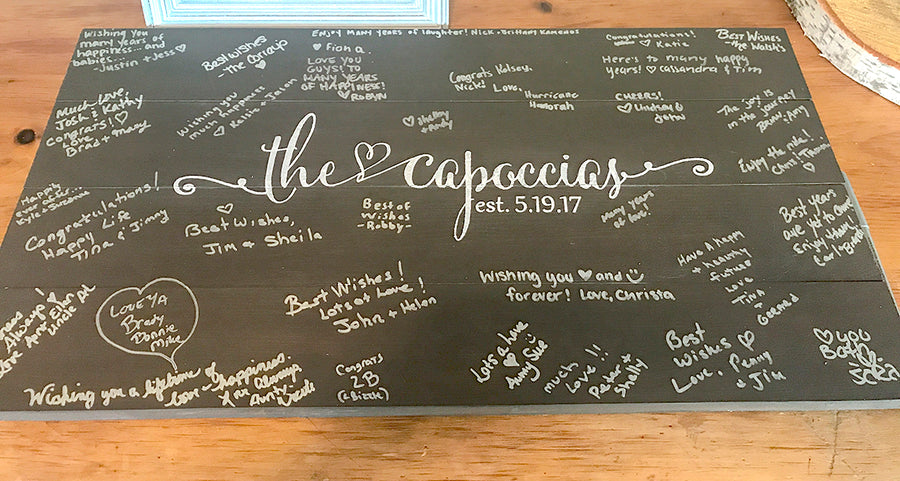 Wishing you
many years of
happiness... and
babies...
-Justin + Jess♡
Best Wishes
-The
ENJOY MANY YEARS of laughter! Nick + Brittany Kamenos
♡ Fiona
LOVE YOU
GUYS! TO
MANY YEARS
OF HAPPINESS!
♡ROBYN
Congrats Kelsey,
Nick! Love,
Hurricane
Hannah
Congratulations!
♡ Katie
Here's to many happy
years! ♡ Cassandra & Tim
Best Wishes
-The Walsh's
Much love,
Josh & Kathy
Congrats!♡
Love
Brad + Macy
Wishing you
much happiness
♡ Kelsie + Jason
♡ Shelby
+ Andy
CHEERS!
♡ Lindsey &
John
The joy is
in the journey!
Brian + Amy
Enjoy the ride!...
Chris +
♡
the ♡ capoccias
est. 5.19.17
Happy
ever after...
Kyle + Suzanne
Congratulations!
Happy Life
Tina & Jimmy
♡
Best Wishes,
Jim & Sheila
Best of
Wishes
-Robby-
Many years
of love!
Best years
are yet to come
Enjoy them!
Have A happy
+ healthy
future
Love
Tina
+
Always!
Love Aunt Ellen
Uncle Al
LOVE YA
Brady
Donnie
Mike
Best Wishes!
Lots of Love!
John + Helen
Wishing you ♡ and
forever! Love, Christa
Wishing you a lifetime of
love - happiness.
Love Always,
Aunty
Congrats
ZB
(z Bizzle)
Lots a Love
♡ Aunty Sue
much
Love!!
Peter +
Shelly
Best
Wishes
Love, Penny
+ Jim
♡ you
Both